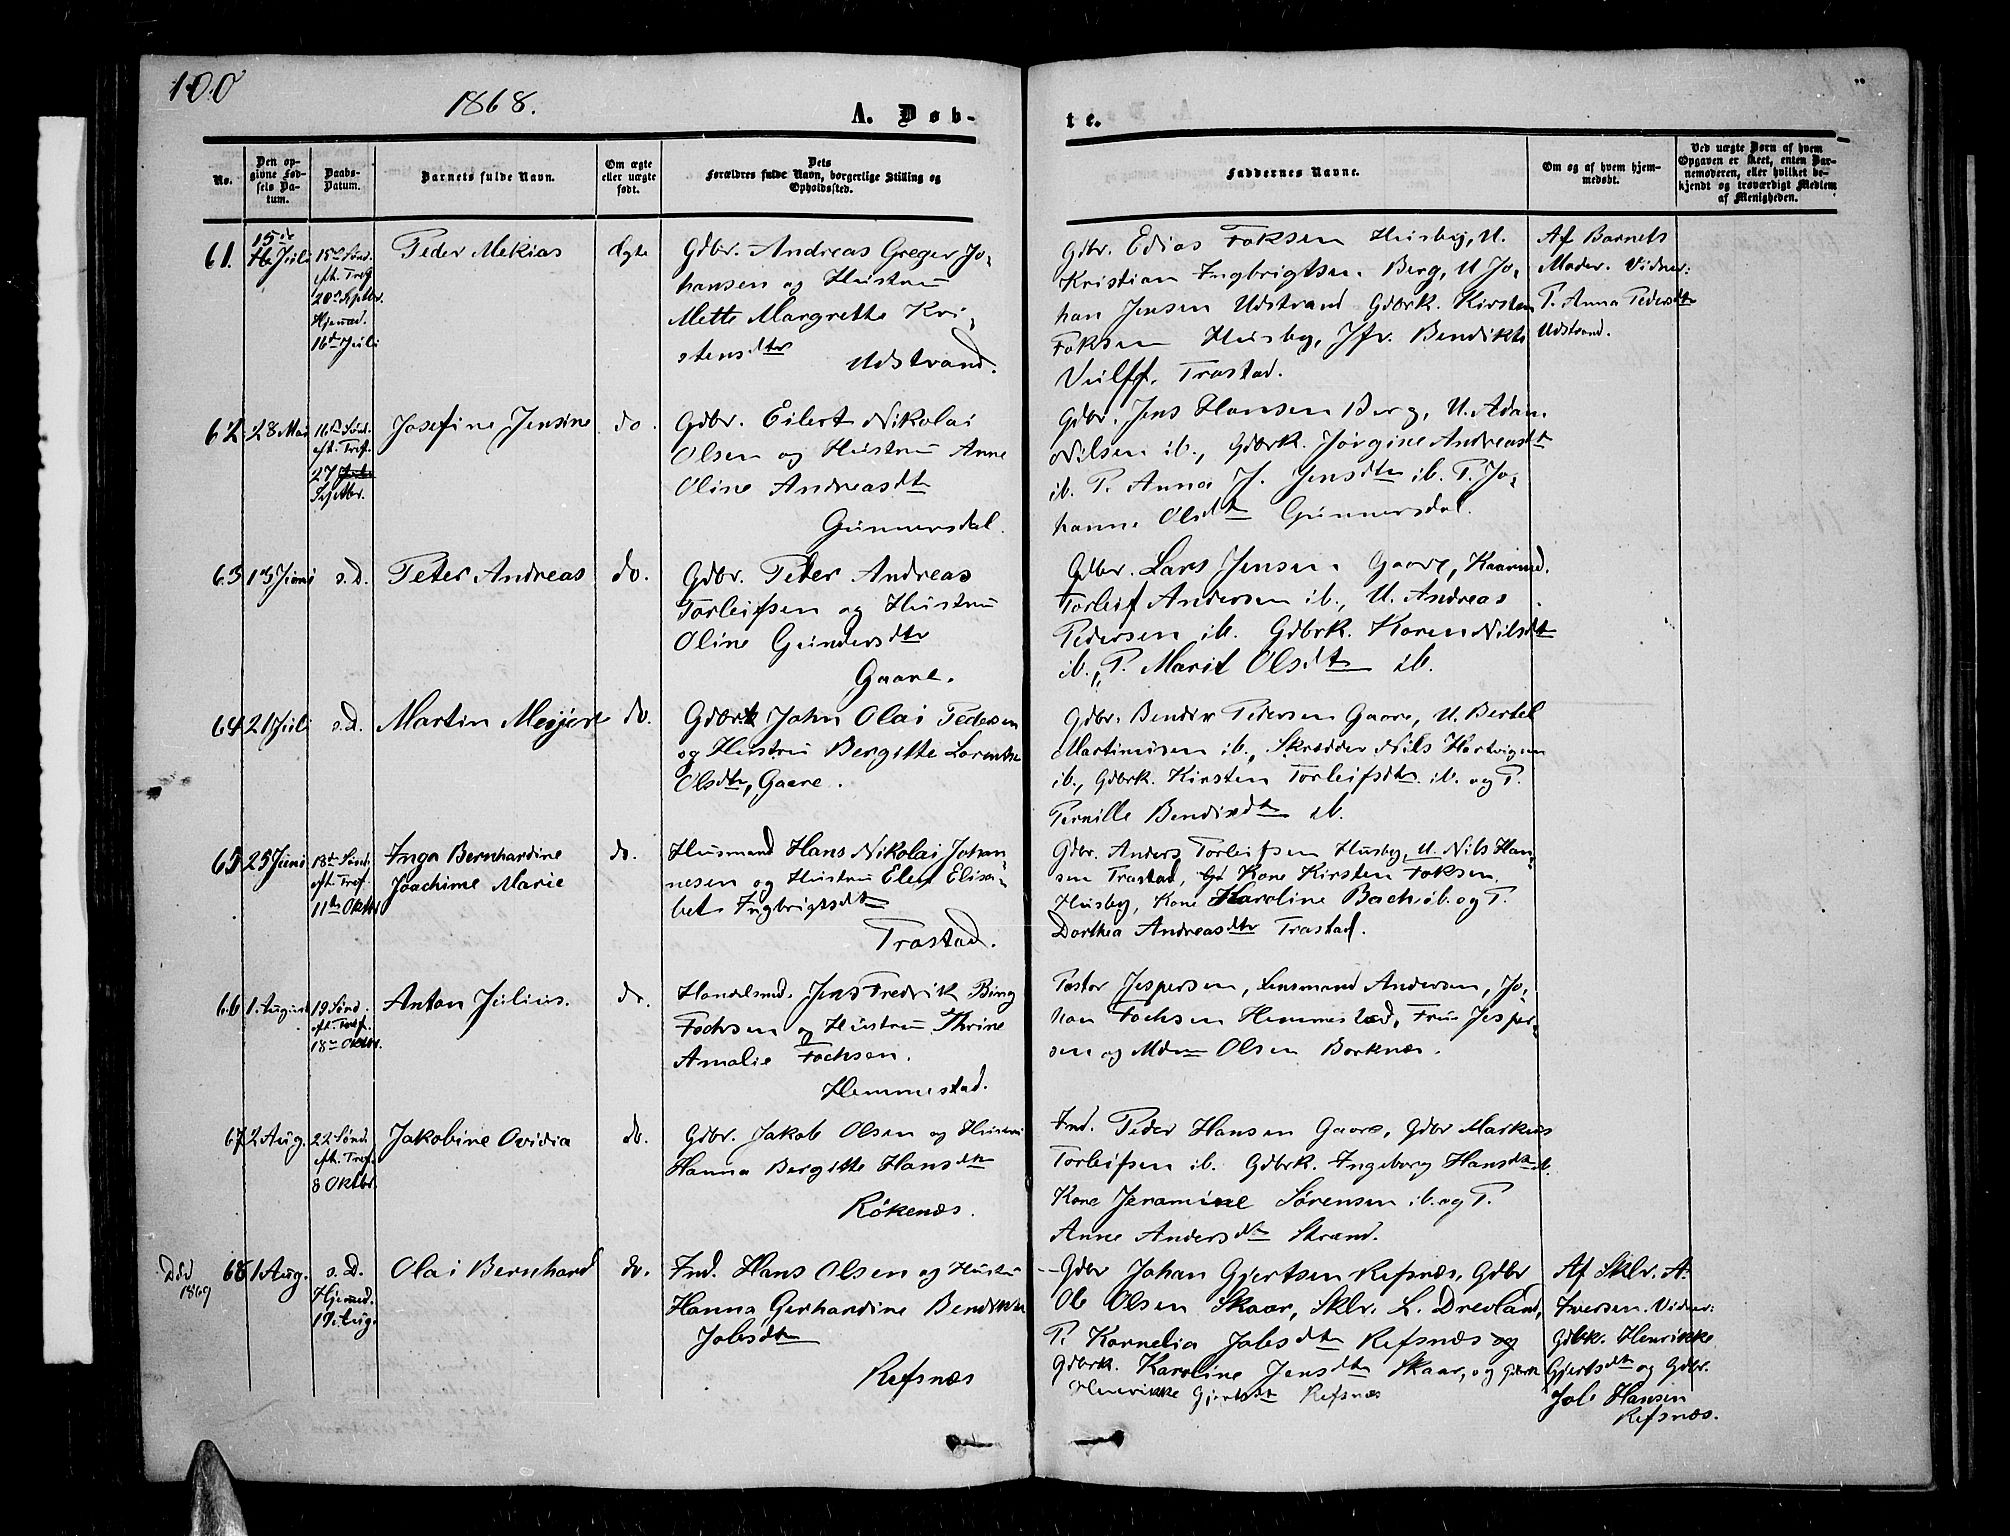 100
1868.
A. Døb-
te.
No.
Den op-
givne Fød-
sels Da-
tum.
Daabs-
Datum.
Barnets fulde Navn.
Om ægte
eller uægte
født.
Dets
Forældres fulde Navn, borgerlige Stilling og
Opholdssted.
Faddernes Navne.
Om og af hvem hjem-
medøbt.
Ved uægte Børn af hvem
Opgaven er skeet, enten Bar-
nemoderen, eller hvilket be-
kjendt og troværdigt Medlem
af Menigheden.
61.
15de
16 Juli
15de Sønd.
eft. Tref
20de Septbr.
Hjemmed.
16de Juli
Peder Mekias
Ægte
Gdbr. Andreas Greger Jo-
hansen og Hustru
Mette Margrethe Kri-
stensdtr
Udstrand.
Gdbr. Edias Foksen Husby, U.
Kristian Ingbrigtsen Berg, U Jo-
han Jensen Udstrand Gdbrk. Kirsten
Foksen Husby, Jfr. Bendikte
Vulff. Trastad.
Af Barnets
Moder. Vidner:
P. Anna Pedersdtr
Udstrand.
62
28 Mai
16de Sønd.
eft. Tref.
27 Septbr.
Josefine Jensine
do.
Gdbr. Eilert Nikolai
Olsen og Hustru Anne
Oline Andreasdtr
Gunnersdal.
Gdbr. Jens Hansen Berg, U. Adam
Nilsen ib., Gdbrk. Jørgine Andreasdtr
ib. P. Anna J. Jensdtr ib. P. Jo-
hanne Olsdtr Gunnersdal.
63
13 Juni
s.D.
Peter Andreas
do.
Gdbr. Peter Andreas
Torleifsen og Hustru
Oline Gundersdtr
Gaare.
Gdbr. Lars Jensen Gaare, Kaarmd.
Torleif Andersen ib., U. Andreas
Pedersen ib. Gdbrk. Karen Nilsdtr
ib., P. Marit Olsdtr ib.
64
21 Juli
s.D.
Martin Mejer
do.
Gdbr John Olai Pedersen
og Hustru Bergitte Lorentse
Olsdtr, Gaare.
Gdbr. Bendix Pedersen Gaare, U. Bertel
Martinusen ib., Skrædder Nils Hartvigsen
ib., Gdbrk. Kirsten Torleifsdtr ib. og P.
Pernille Bendixdtr ib.
65
25 Juni
18de Sønd.
eft. Tref.
11te Oktbr
Inga Bernhardine
Joachime Marie
do.
Husmand Hans Nikolai Johan-
nesen og Hustru Elen Elisa-
bet Ingbrigtsdtr
Trastad.
Gdbr. Anders Torleifsen Husby, U. Nils Han-
sen Trastad, Kone Kirsten Foksen
Husby, Kone Karoline Bach ib. og P.
Dorthea Andreasdtr Trastad.
66
1. August
19 Sønd.
eft. Tref.
18de Oktbr.
Anton Julius.
do.
Handelsmd. Jens Fredrik Bing
Fochsen og Hustru Thrine
Amalie Fochsen.
Hemmestad.
Pastor Jespersen, Lensmand Andersen, Jo-
han Fochsen Hemmestad, Frue Jesper-
sen og Mdm Olsen Borknæs.
67
2 Aug.
22 Sønd.
eft. Tref.
8 Oktbr.
Jakobine Ovidia
do.
Gdbr. Jakob Olsen og Hustru
Hanna Bergitte Hansdtr
Røkenæs.
Ind. Peder Hansen Gaare, Gdbr Markus
Torleifsen ib. Gdbrk. Ingeborg Hansdtr ib.
Kone Jeramine Sørensen ib. og P.
Anne Andersdtr Strand.
Død
1869
68
1 Aug.
s.D.
Hjemmed.
17. Aug.
Olai Bernhard
do.
Ind. Hans Olsen og Hustru
Hanna Gerhardine Bendikke
Jobsdtr
Refsnæs
Gdbr Johan Gjertsen Refsnæs, Gdbr
Ole Olsen Skaar, Sklr. L. Drevland,
P. Kornelia Jobsdtr Refsnæs og
Gdbrk. Karoline Jensdtr Skaar, og Gdbrk
Henrikke Gjertsdtr Refsnæs
Af Sklr. A.
Iversen. Vidner:
Gdbk. Henrikke
Gjertsdtr og Gdbr.
Job Hansen
Refsnæs.